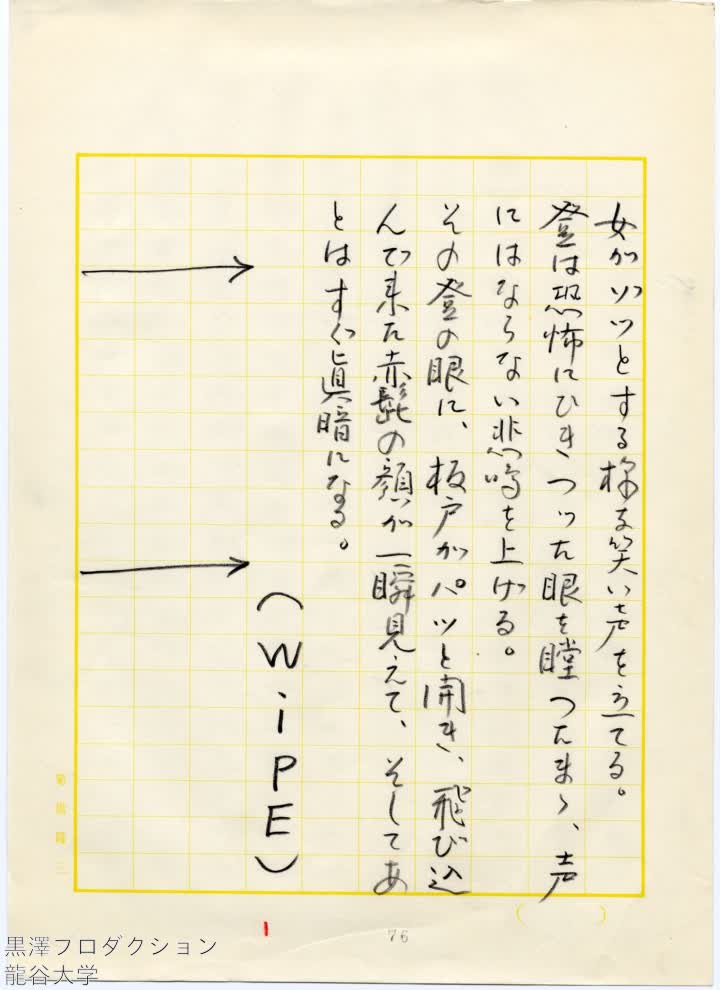 女がゾッとする様な笑い声を立てる。
登は恐怖にひきつッた眼を瞠つたまゝ、声
にはならない悲鳴を上げる。
その登の眼に、板戸がパッと開き、飛び込
んで来た赤髭の顔が一瞬見えて、そしてあ
とはすぐ眞暗になる。
（WiPE）
76
黒澤プロダクション
龍谷大学